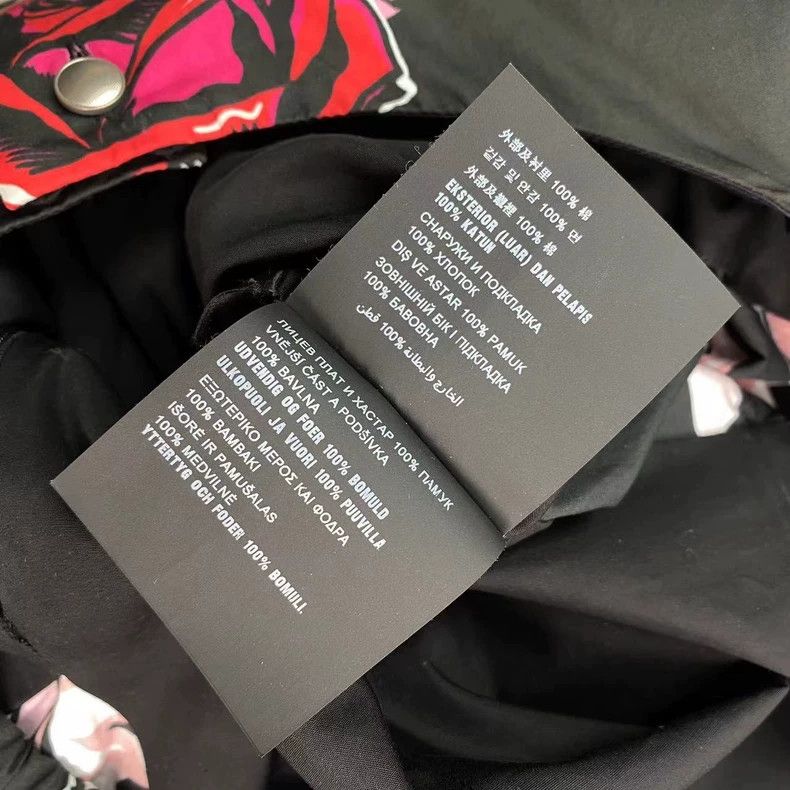 外部及衬里 100% 棉
겉감 및 안감 100% 면
外部及襯裡 100% 棉
EKSTERIOR (LUAR) DAN PELAPIS
100% KATUN
СНАРУЖИ И ПОДКЛАДКА
100% ХЛОПОК
DIŞ VE ASTAR 100% PAMUK
ЗОВНІШНІЙ БІК І ПІДКЛАДКА
100% БАВОВНА
الخارج والبطانة 100% قطن
ЛИЦЕВ ПЛАТ И ХАСТАР 100% ПАМУК
VNĚJŠÍ ČÁST A PODŠÍVKA
100% BAVLNA
UDVENDIG OG FOER 100% BOMULD
ULKOPUOLI JA VUORI 100% PUUVILLA
ΕΞΩΤΕΡΙΚΟ ΜΕΡΟΣ ΚΑΙ ΦΟΔΡΑ
100% ΒΑΜΒΑΚΙ
IŠORĖ IR PAMUŠALAS
100% MEDVILNĖ
YTTERTYG OCH FODER 100% BOMULL